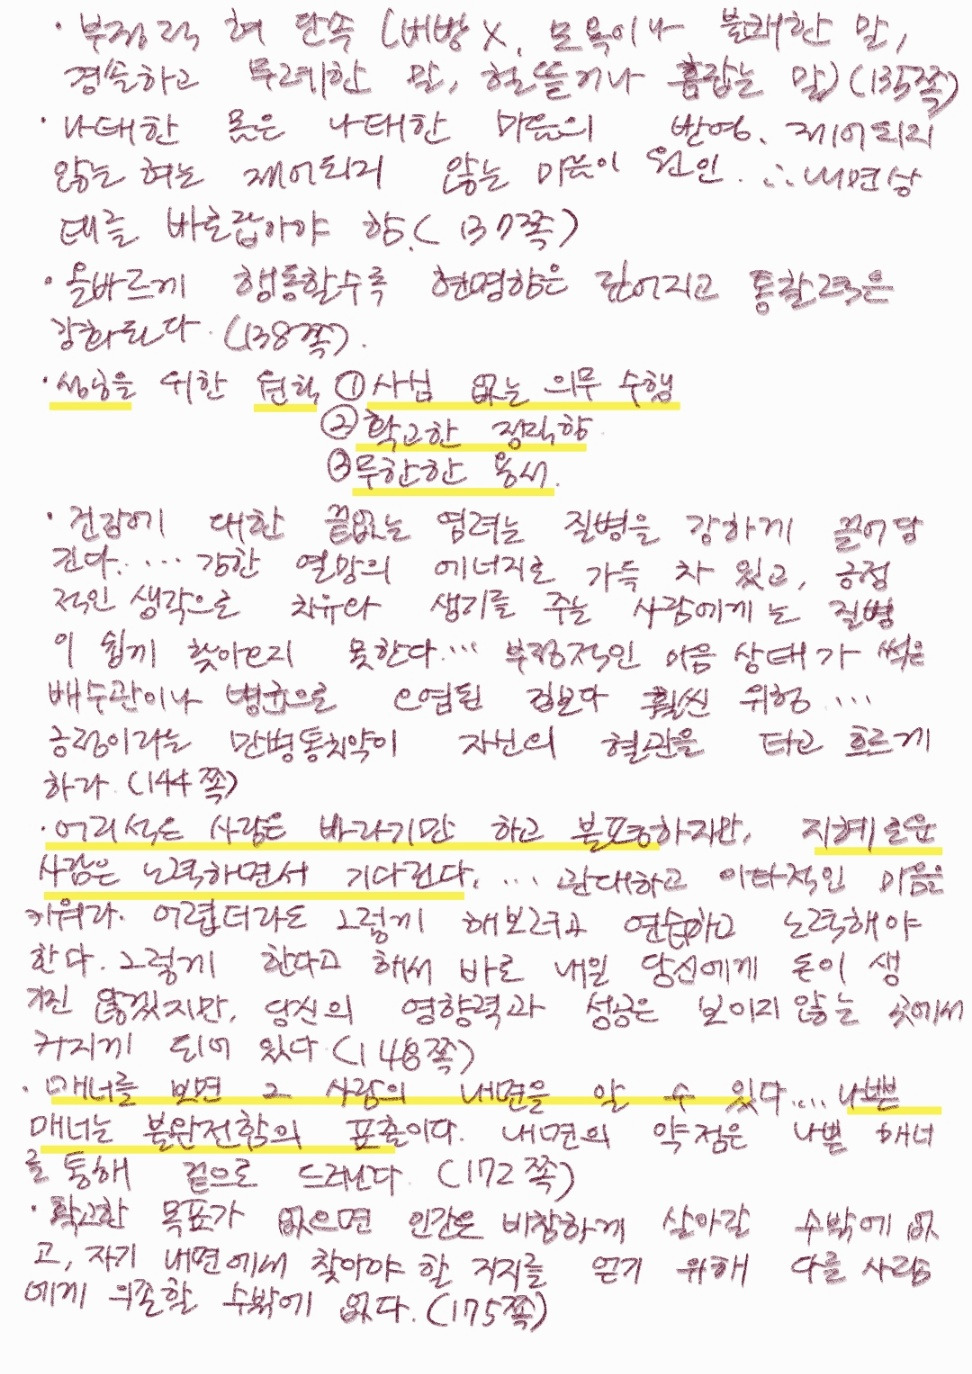 · 부정적 혀 단속 (비방 X, 모욕이나 불쾌한 말,
경솔하고 무례한 말, 헐뜯거나 흠잡는 말) (135쪽)
· 나태한 몸은 나태한 마음의 반영. 제어되지
않는 혀는 제어되지 않는 마음이 원인. ∴ 내면상
태를 바로잡아야 함. (137쪽)
· 올바르게 행동할수록 현명함은 깊어지고 통찰력은
강화된다. (138쪽).
· 성공을 위한 원칙 ① 사심 없는 의무 수행
② 확고한 정직함.
③ 무한한 용서.
· 건강에 대한 끝없는 염려는 질병을 강하게 끌어당
긴다. .... 강한 열망의 에너지로 가득 차 있고, 긍정
적인 생각으로 치유와 생기를 주는 사람에게는 질병
이 쉽게 찾아오지 못한다... 부정적인 마음 상태가 썩은
배수관이나 병균으로 오염된 집보다 훨씬 위험 ...
긍정이라는 만병통치약이 자신의 혈관을 타고 흐르게
하라. (144쪽)
· 어리석은 사람은 바라기만 하고 불평하지만, 지혜로운
사람은 노력하면서 기다린다. ... 관대하고 이타적인 마음을
키워라. 어렵더라도 그렇게 해보려고 연습하고 노력해야
한다. 그렇게 한다고 해서 바로 내일 당신에게 돈이 생
기진 않겠지만, 당신의 영향력과 성공은 보이지 않는 곳에서
커지게 되어 있다. (148쪽)
· 매너를 보면 그 사람의 내면을 알 수 있다.... 나쁜
매너는 불완전함의 표출이다. 내면의 약점은 나쁜 매너
를 통해 겉으로 드러난다. (172쪽)
· 확고한 목표가 없으면 인간은 비참하게 살아갈 수밖에 없
고, 자기 내면에서 찾아야 할 지지를 얻기 위해 다른 사람
에게 의존할 수밖에 없다. (175쪽)